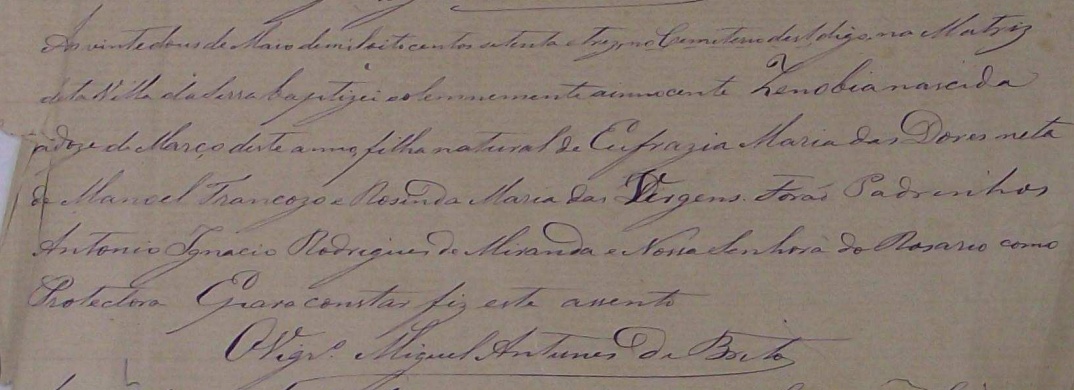 Aos vinte dous de Maio de mil oito centos setenta e trez, no Cemeterio desta, digo, na Matriz
desta Villa da Serra baptizei solemnemente a innocente Zenobia nascida
a doze de Março deste anno, filha natural de Eufrazia Maria das Dores neta
de Manoel Francozo e Rosinda Maria das Virgens. Forão Padrinhos
Antonio Ignacio Rodrigues de Miranda e Nossa Senhora do Rosario como
Protectora E para constar fiz este assento
O Vigrº. Miguel Antunes de Brito